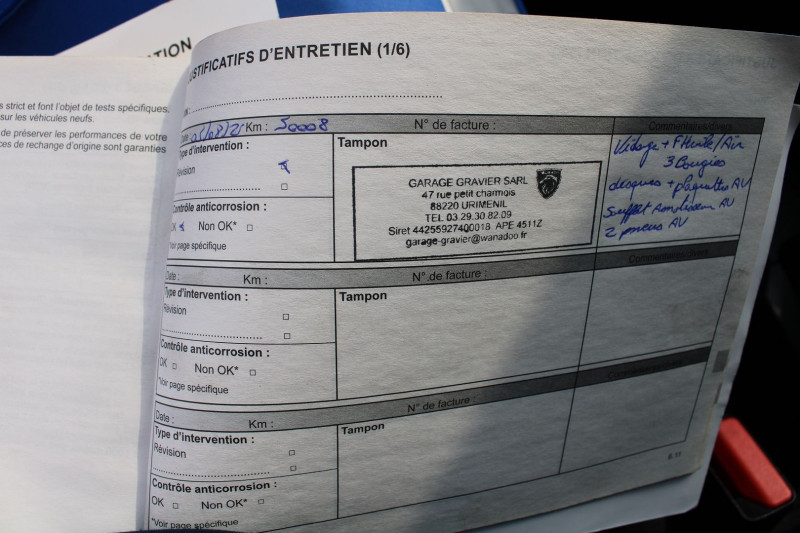 ENTION
s strict et font l'objet de tests spécifiques,
sur les véhicules neufs.
de préserver les performances de votre
ces de rechange d'origine sont garanties
JSTIFICATIFS D'ENTRETIEN (1/6)
Date : 05/08/21 Km : 50008 N° de facture : Commentaires/divers
Type d'intervention :
Révision
Contrôle anticorrosion :
OK Non OK*
*Voir page spécifique
Tampon
GARAGE GRAVIER SARL
47 rue petit charmois
88220 URIMENIL
TEL 03.29.30.82.09
Siret 44255927400018 APE 4511Z
garage-gravier@wanadoo.fr
Vidage + F Huile/Air
3 Bougies
disques + plaquettes AV
Soufflet AV
2 pneus AV
Date : Km : N° de facture : Commentaires/divers
Type d'intervention :
Révision
Contrôle anticorrosion :
OK Non OK*
*Voir page spécifique
Tampon
Date : Km : N° de facture : Commentaires/divers
Type d'intervention :
Révision
Contrôle anticorrosion :
OK Non OK*
*Voir page spécifique
Tampon
6.11